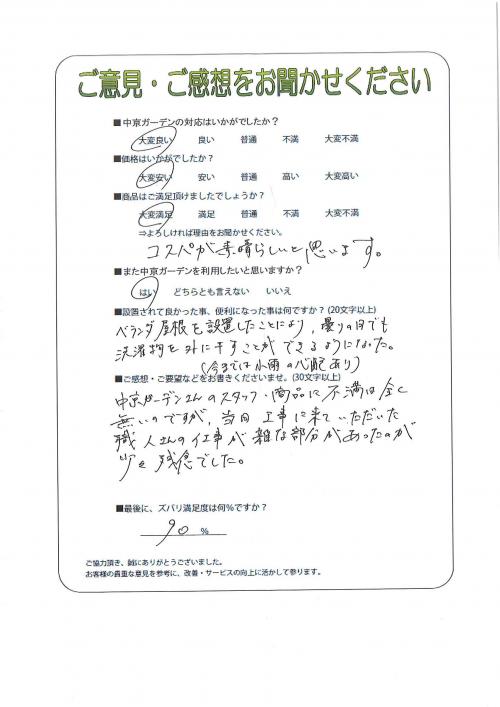 ご意見・ご感想をお聞かせください
■中京ガーデンの対応はいかがでしたか？
大変良い 良い 普通 不満 大変不満
■価格はいかがでしたか？
大変安い 安い 普通 高い 大変高い
■商品はご満足頂けましたでしょうか？
大変満足 満足 普通 不満 大変不満
⇒よろしければ理由をお聞かせください。
コスパが素晴らしいと思います。
■また中京ガーデンを利用したいと思いますか？
はい どちらとも言えない いいえ
■設置されて良かった事、便利になった事は何ですか？(20文字以上)
ベランダ屋根を設置したことにより、曇りの日でも
洗濯物を外に干すことができるようになった。
(今までは小雨の心配あり)
■ご感想・ご要望などをお書きくださいませ。(30文字以上)
中京ガーデンさんのスタッフ・商品に不満は全く
無いのですが、当日工事に来ていただいた
職人さんの仕事が雑な部分があったのが
少々残念でした。
■最後に、ズバリ満足度は何%ですか？
90 %
ご協力頂き、誠にありがとうございました。
お客様の貴重な意見を参考に、改善・サービスの向上に活かして参ります。